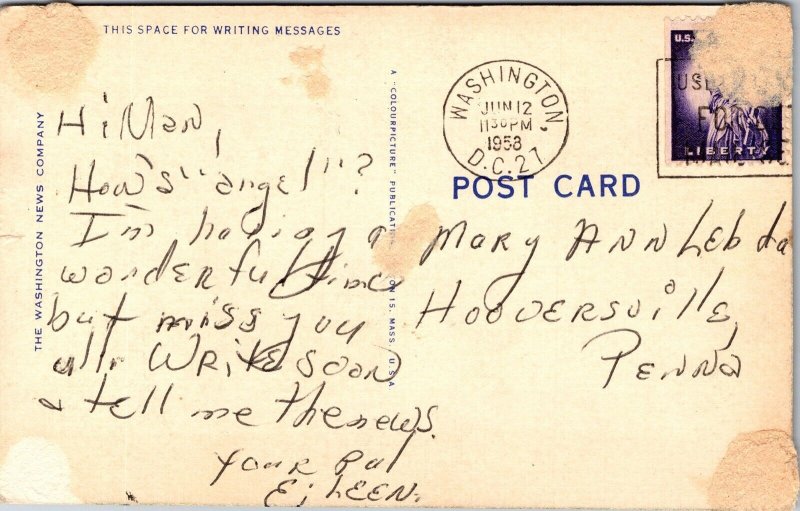 THIS SPACE FOR WRITING MESSAGES
THE WASHINGTON NEWS COMPANY
Hi Man,
How's "angel"?
I'm having a
wonderful time
but miss you
all. Write soon
& tell me the news.
Your pal
Eileen.
A "COLOURPICTURE" PUBLICATION 15, MASS. U.S.A
WASHINGTON,
JUN 12
1130 PM
1958
D.C. 27
U.S.
LIBERTY
POST CARD
Mary Ann Lebda
Hooversville,
Penna